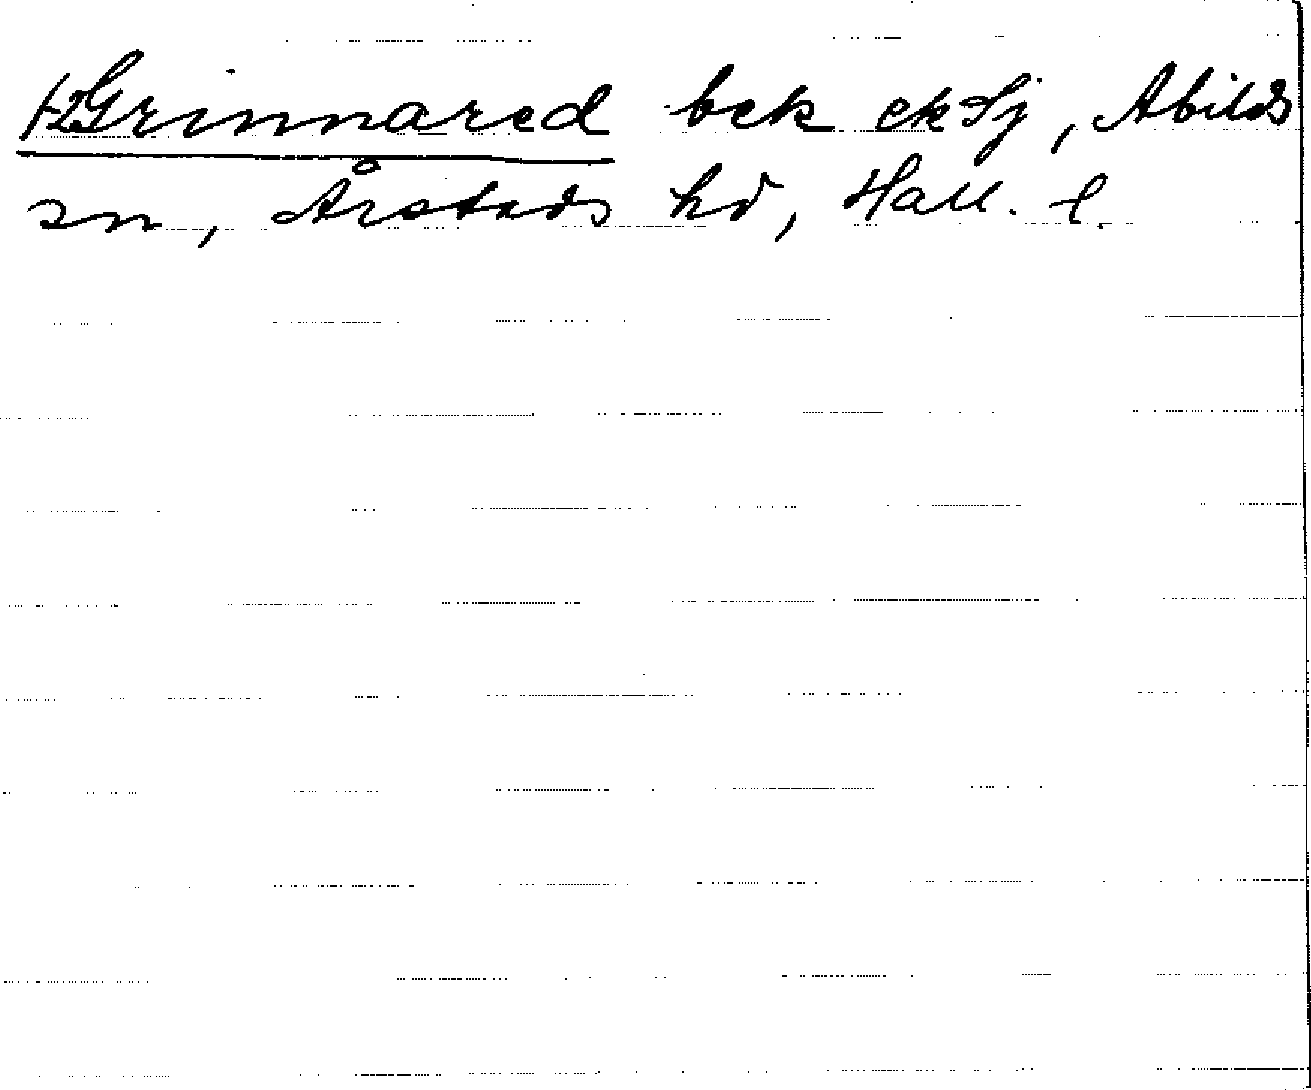 1-2 Grinnared bek ekSj, Abilds
sn, Årstads hd, Hall. l.